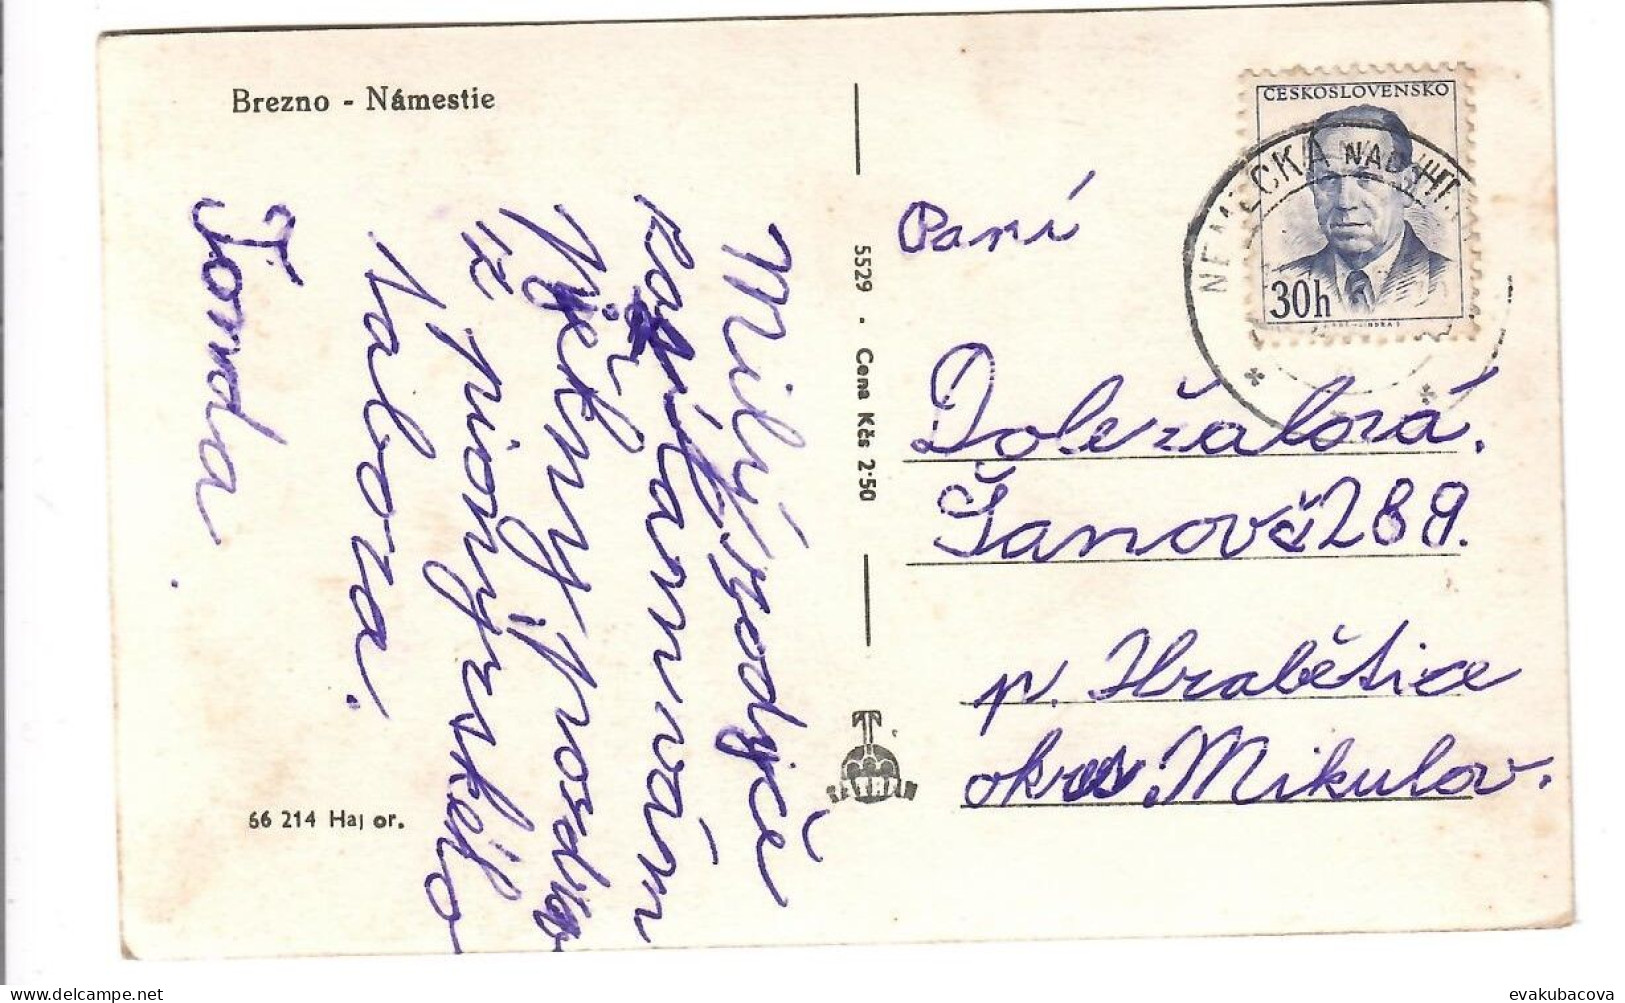 Brezno - Námestie
Milý rodiče
posílám vám
pěkný pozdrav
z pionyrského
tabora.
Tonda
66 214 Haj or.
5529 · Cena Kčs 2·50
TATRAN
ČESKOSLOVENSKO
30h
NEMECKÁ NAD HR
Paní
Doležalová.
Šanov č 289.
p. Hrabětice
okres Mikulov.
evakubacova